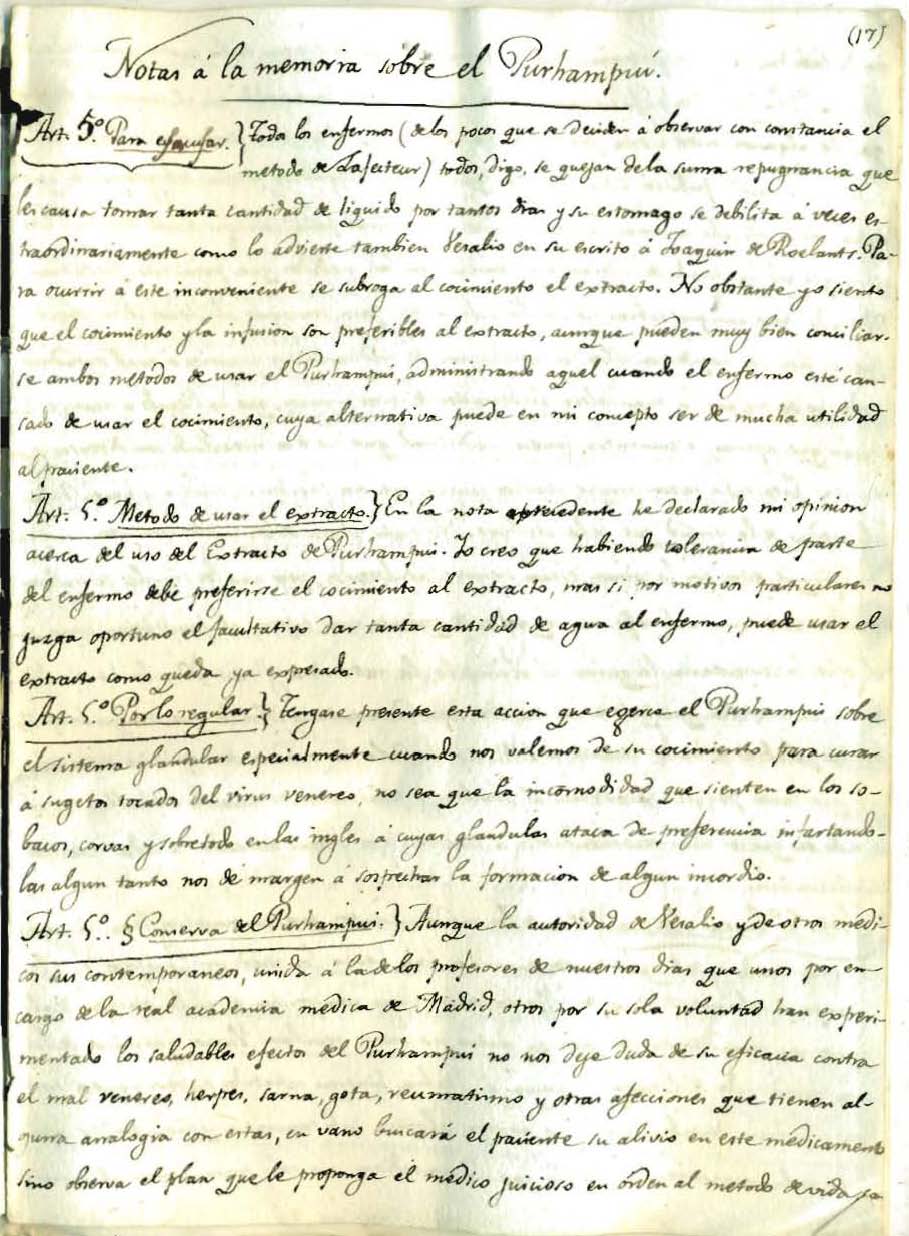 (17)
Notas á la memoria sóbre el Purhampuí.
Art. 5.º Para escusar. } Todos los enfermos (de los pocos que se deciden á observar con constancia el
metodo de Lafecteur) todos, digo, se quejan de la suma repugnancia que
les causa tomar tanta cantidad de liquido por tantos dias y su estomago se debilita á veces es-
traordinariamente como lo advierte tambien Vesalio en su escrito á Joaquin de Roelants. Pa-
ra ocurrir á este inconveniente se subroga al cocimiento el extracto. No obstante yo siento
que el cocimiento y la infusion son preferibles al extracto, aunque pueden muy bien conciliar-
se ambos metodos de usar el Purhampui, administrando aquel cuando el enfermo esté can-
sado de usar el cocimiento, cuya alternativa puede en mi concepto ser de mucha utilidad
al paciente.
Art. 5.º Metodo de usar el extracto. } En la nota antecedente he declarado mi opinion
acerca del uso del Extracto de Purhampui. Yo creo que habiendo tolerancia de parte
del enfermo debe preferirse el cocimiento al extracto, mas si por motivos particulares no
juzga oportuno el facultativo dar tanta cantidad de agua al enfermo, puede usar el
extracto como queda ya expresado.
Art. 5.º Por lo regular. } Tengase presente esta accion que egerce el Purhampui sobre
el sistema glandular especialmente cuando nos valemos de su cocimiento para curar
á sugetos tocados del virus venereo, no sea que la incomodidad que sienten en los so-
bacos, corvas y sobretodo en las ingles á cuyas glandulas ataca de preferencia infartando-
las algun tanto nos dé margen á sospechar la formacion de algun incordio.
Art. 5.º. § Conserva del Purhampui. } Aunque la autoridad de Vesalio y de otros medi-
cos sus contemporaneos, unida á la de los profesores de nuestros dias que unos por en-
cargo de la real academia medica de Madrid, otros por su sola voluntad han experi-
mentado los saludables efectos del Purhampui no nos deje duda de su eficacia contra
el mal venereo, herpes, sarna, gota, reumatismo y otras afecciones que tienen al-
guna analogia con estas, en vano buscará el paciente su alivio en este medicamento
sino observa el plan que le proponga el medico juicioso en órden al metodo de vida